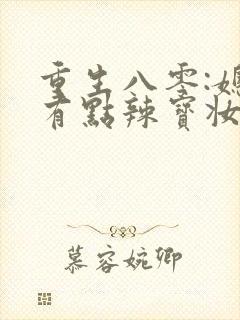 重生八零:媳
有點辣寶妝
慕容婉卿